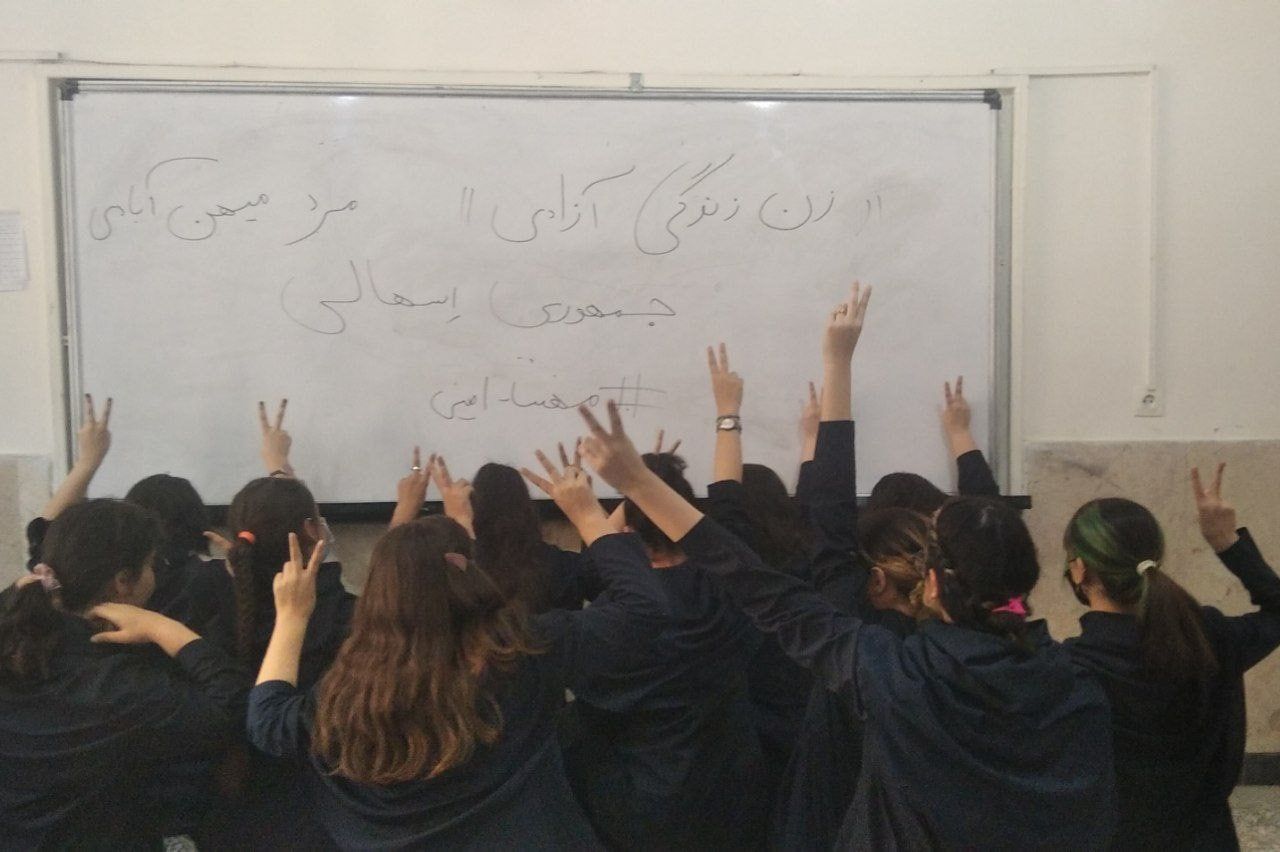 "زن زندگی آزادی" مرد میهن آبادی
جمهوری اِسهالی
#مهسا-امینی